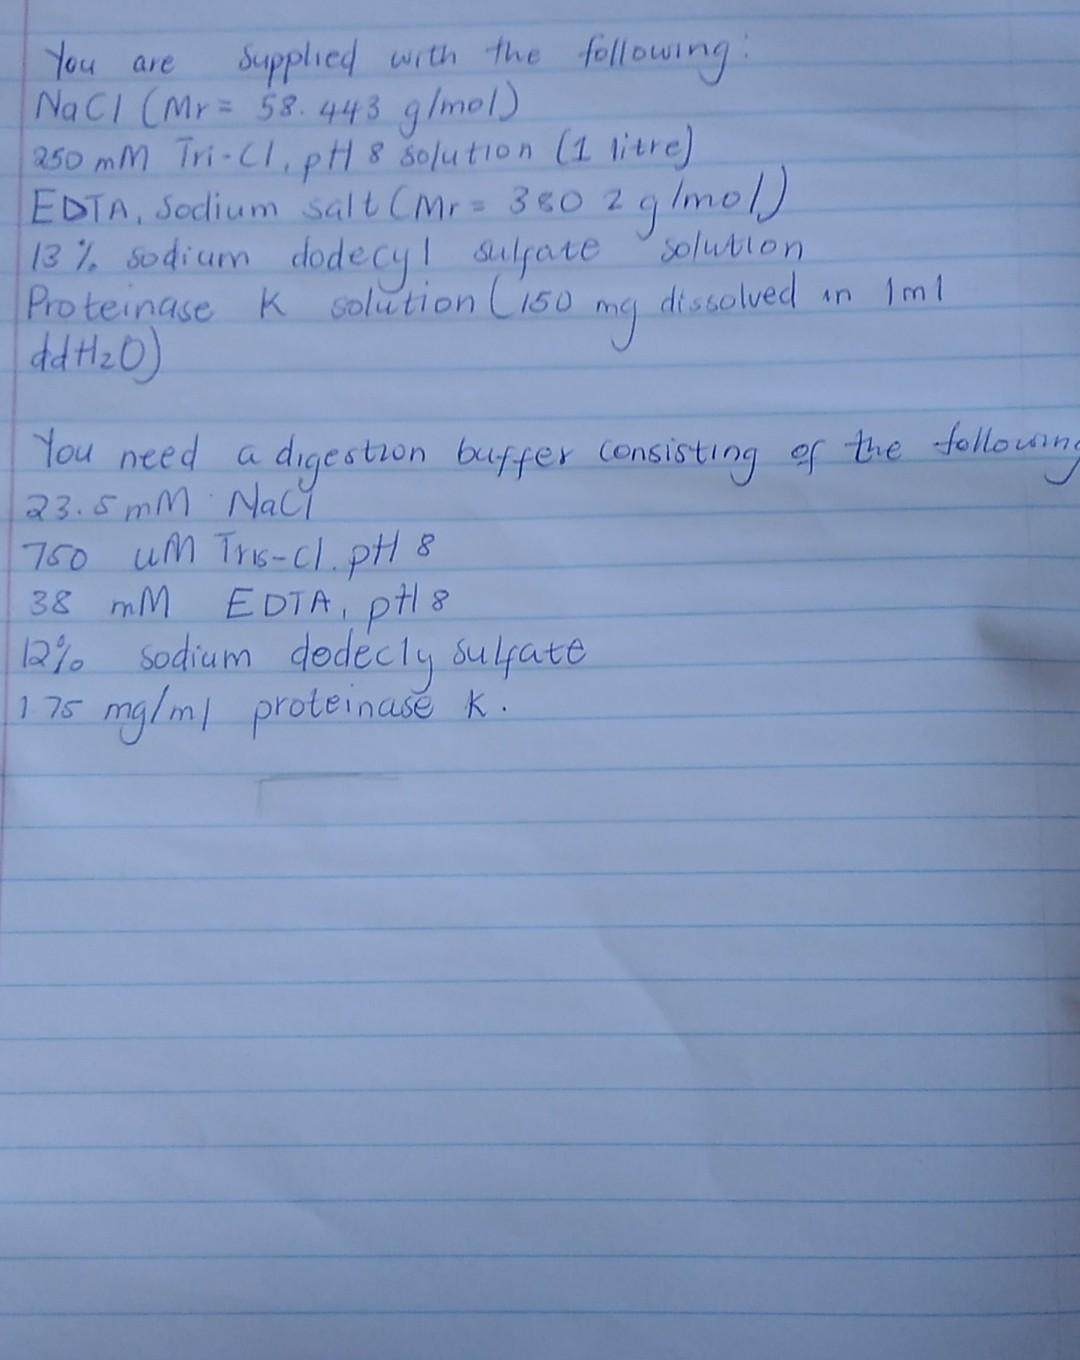 You are supplied with the following:
NaCl (Mr = 58.443 g/mol)
250 mM Tri-Cl, pH 8 solution (1 litre)
EDTA, Sodium salt (Mr = 380 2 g/mol)
13% sodium dodecyl sulfate solution
Proteinase K solution (150 mg dissolved in 1ml
ddH2O)
You need a digestion buffer consisting of the following
23.5 mM NaCl
750 uM Tris-Cl. pH 8
38 mM EDTA, pH 8
12% sodium dodecly sulfate
1.75 mg/ml proteinase K.